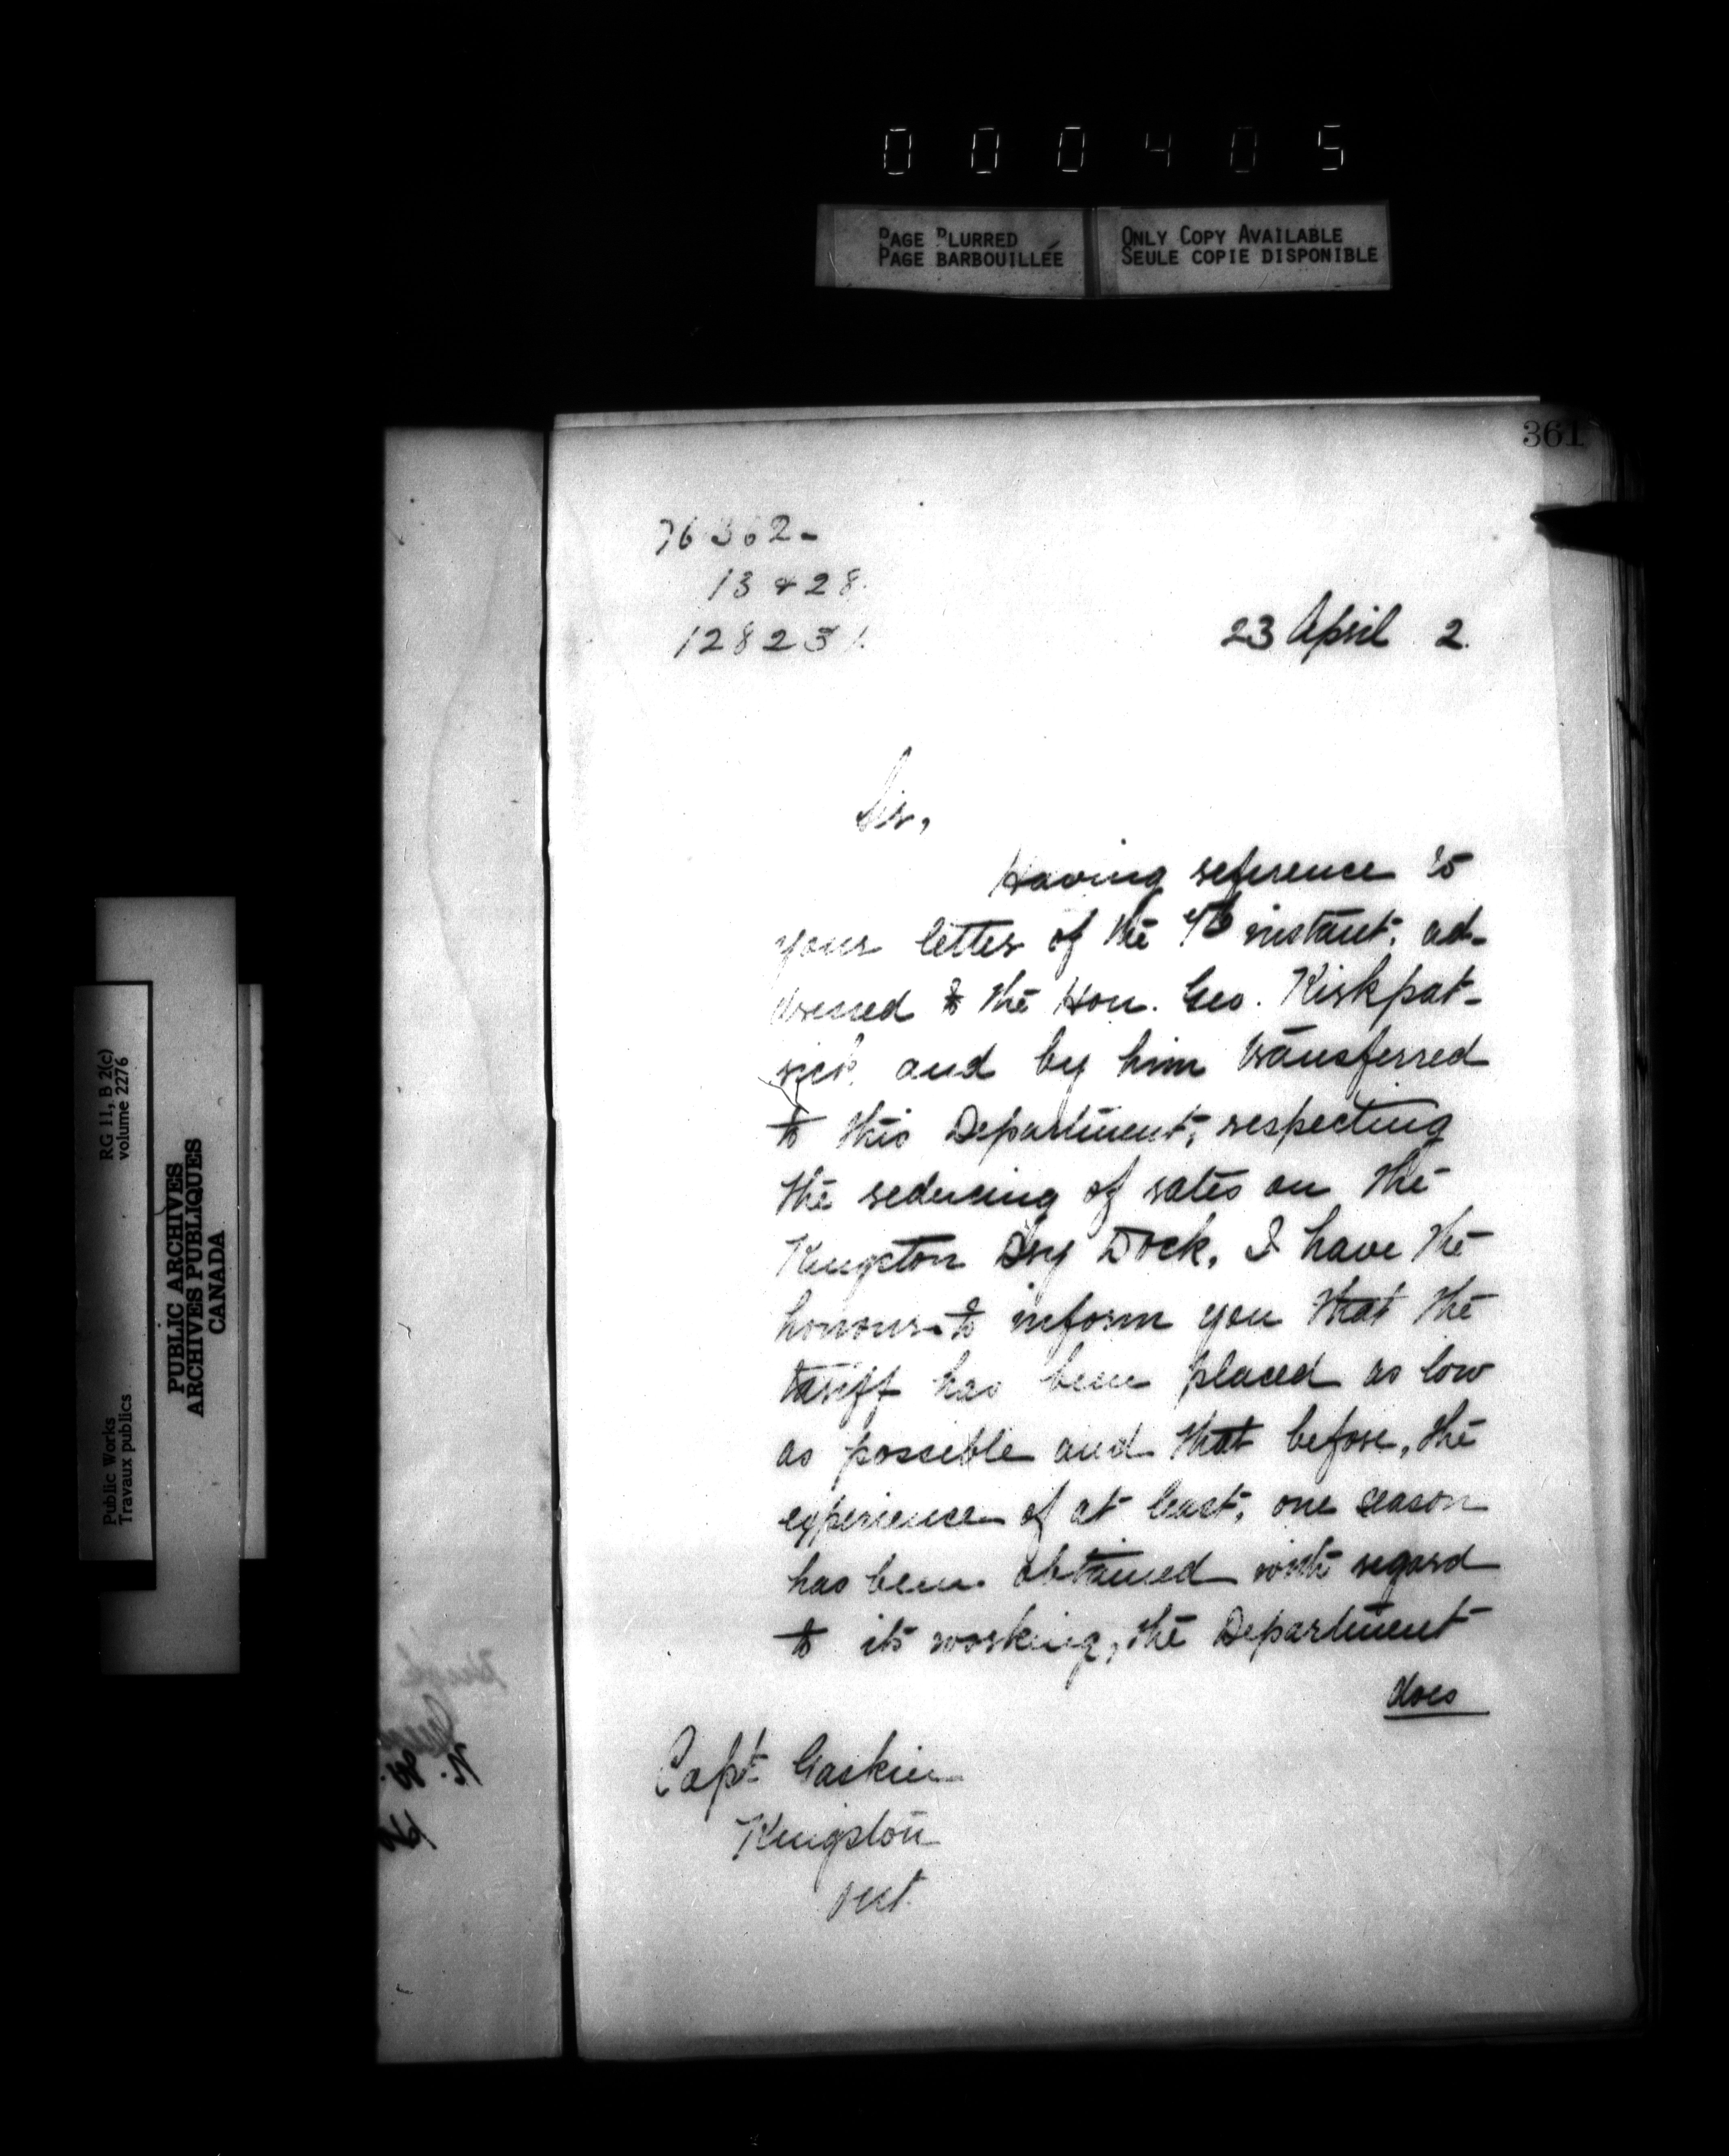 000405
PAGE BLURRED
PAGE BARBOUILLÉE
ONLY COPY AVAILABLE
SEULE COPIE DISPONIBLE
361
76362-
13428
128251.
23 April 2.
Sir,
Having reference to
your letter of the instant, ad-
dressed to the Hon. Geo. Kirkpat-
rick and by him transferred
to this Department, respecting
the reducing of rates on the
Kingston Dry Dock, I have the
honour to inform you that the
tariff has been placed as low
as possible and that before, the
experience of at least, one season
has been obtained with regard
to its working, the Department
does
Capt. Gaskin
Kingston
Ont.
RG 11, B 2(c)
volume 2276
Public Works
Travaux publics
PUBLIC ARCHIVES
ARCHIVES PUBLIQUES
CANADA